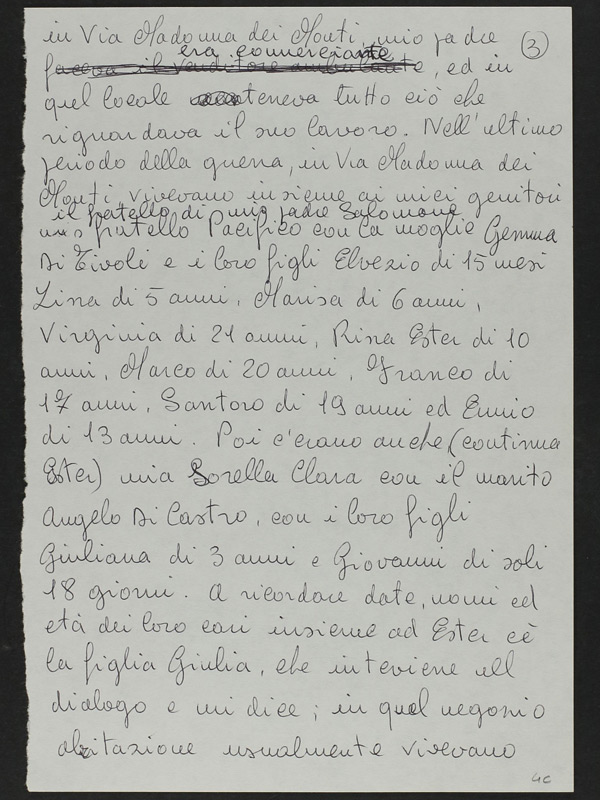 in Via Madonna dei Monti, mio padre
3
era commerciante
faceva il venditore ambulante, ed in
quel locale teneva tutto ciò che
riguardava il suo lavoro. Nell'ultimo
periodo della guerra, in Via Madonna dei
Monti, vivevano insieme ai miei genitori
il fratello di mio padre Salomone
mio fratello Pacifico con la moglie Gemma
Di Tivoli e i loro figli Elvezio di 15 mesi
Lina di 5 anni, Marisa di 6 anni,
Virginia di 21 anni, Rina Ester di 10
anni, Marco di 20 anni, Franco di
17 anni, Santoro di 19 anni ed Ennio
di 13 anni. Poi c'erano anche (continua
Ester) mia Sorella Clara con il marito
Angelo Di Castro, con i loro figli
Giuliana di 3 anni e Giovanni di soli
18 giorni. A ricordare date, nomi ed
età dei loro cari insieme ad Ester c'è
la figlia Giulia, che interviene nel
dialogo e mi dice; in quel negozio
abitazione usualmente vivevano